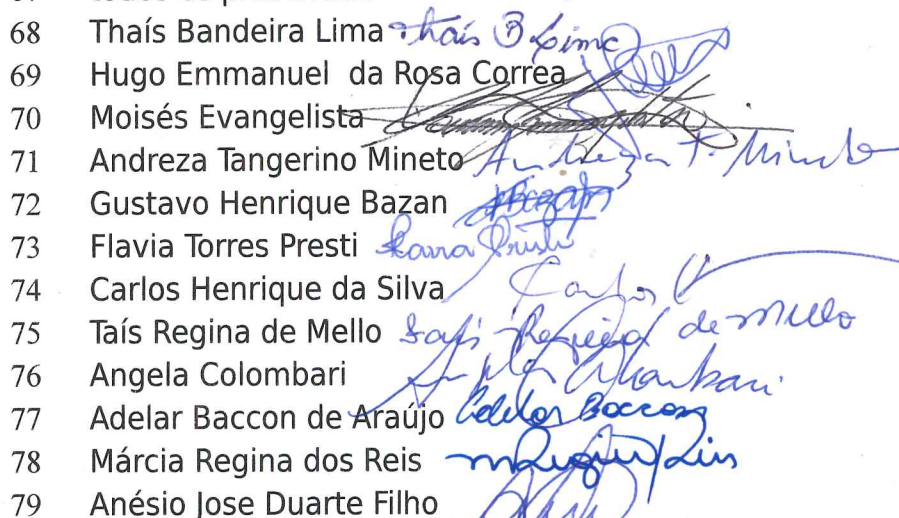 68 Thaís Bandeira Lima Thaís B Lima
69 Hugo Emmanuel da Rosa Correa
70 Moisés Evangelista
71 Andreza Tangerino Mineto Andreza T. Mineto
72 Gustavo Henrique Bazan HBazan
73 Flavia Torres Presti
74 Carlos Henrique da Silva Carlos
75 Taís Regina de Mello Taís Regina de Mello
76 Angela Colombari
77 Adelar Baccon de Araújo Adelar Baccon
78 Márcia Regina dos Reis
79 Anésio Jose Duarte Filho